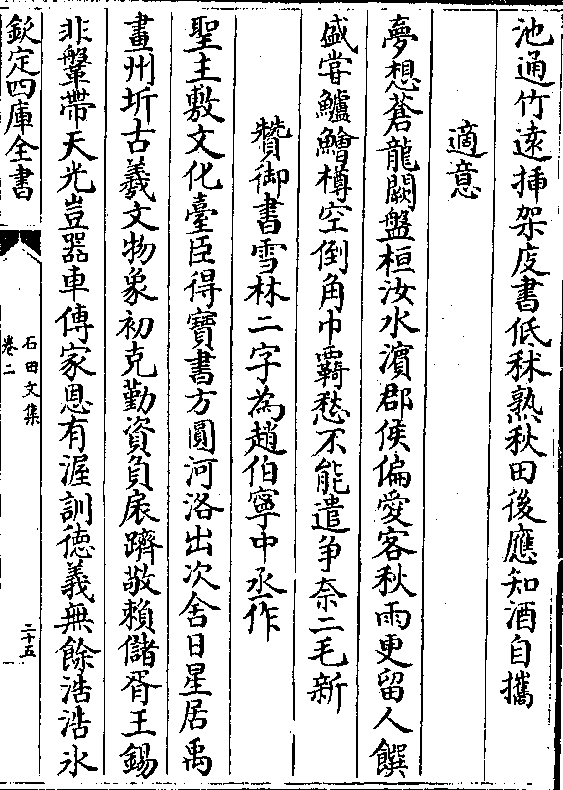 池通竹遠揷架庋書低秫熟秋田後應知酒自攜
適意
夢想蒼龍闕盤桓汝水濵郡侯偏愛客秋雨更留人饌
盛嘗鱸鱠樽空倒角巾覊愁不能遣争奈二毛新
贊御書雪林二字為趙伯寧中丞作
聖主敷文化臺臣得寶書方圓河洛出次舍日星居禹
畫州圻古羲文物象初克勤資負扆躋敬賴儲胥王錫
非鞶帶天光豈器車傳家恩有渥訓徳義無餘浩浩氷
欽定四庫全書
石田文集
卷二
二十五